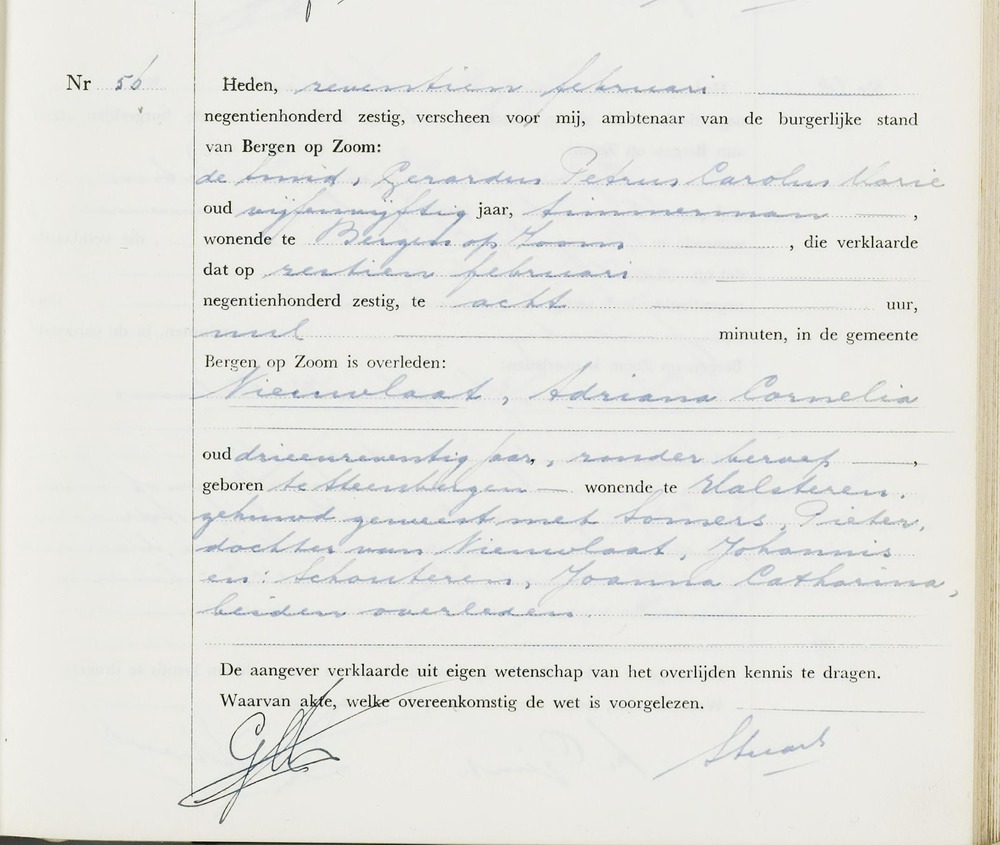 Nr 56 Heden, zeventien februari
negentienhonderd zestig, verscheen voor mij, ambtenaar van de burgerlijke stand
van Bergen op Zoom:
Gerardus Petrus Carolus Marie
oud vijfenvijftig jaar, timmerman ,
wonende te Bergen op Zoom , die verklaarde
dat op zestien februari
negentienhonderd zestig, te acht uur,
nul minuten, in de gemeente
Bergen op Zoom is overleden:
Nieuwlaat, Adriana Cornelia
oud drieenzeventig jaar, , zonder beroep ,
geboren te Steenbergen wonende te Halsteren.
gehuwd geweest met Somers, Pieter,
dochter van Nieuwlaat, Johannis
en: Schouteren, Joanna Catharina,
beiden overleden.
De aangever verklaarde uit eigen wetenschap van het overlijden kennis te dragen.
Waarvan akte, welke overeenkomstig de wet is voorgelezen.